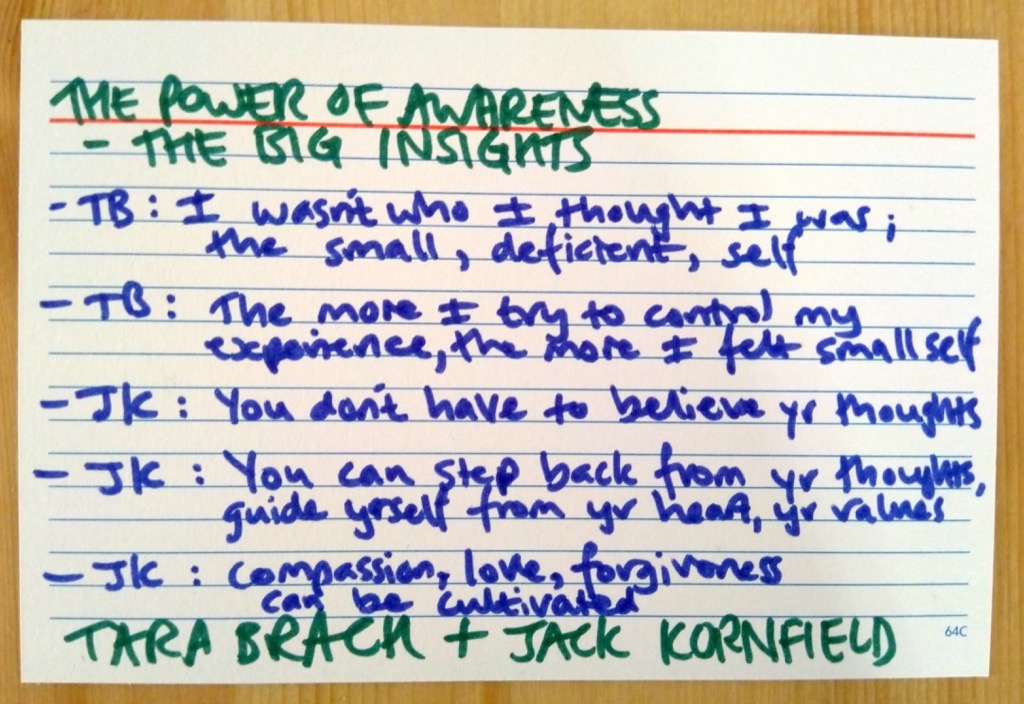 THE POWER OF AWARENESS
- THE BIG INSIGHTS
- TB: I wasn't who I thought I was;
the small, deficient, self
- TB: The more I try to control my
experience, the more I felt small self
- JK: You don't have to believe yr thoughts
- JK: You can step back from yr thoughts,
guide yrself from yr heart, yr values
- JK: compassion, love, forgiveness
can be cultivated
TARA BRACH + JACK KORNFIELD
64C